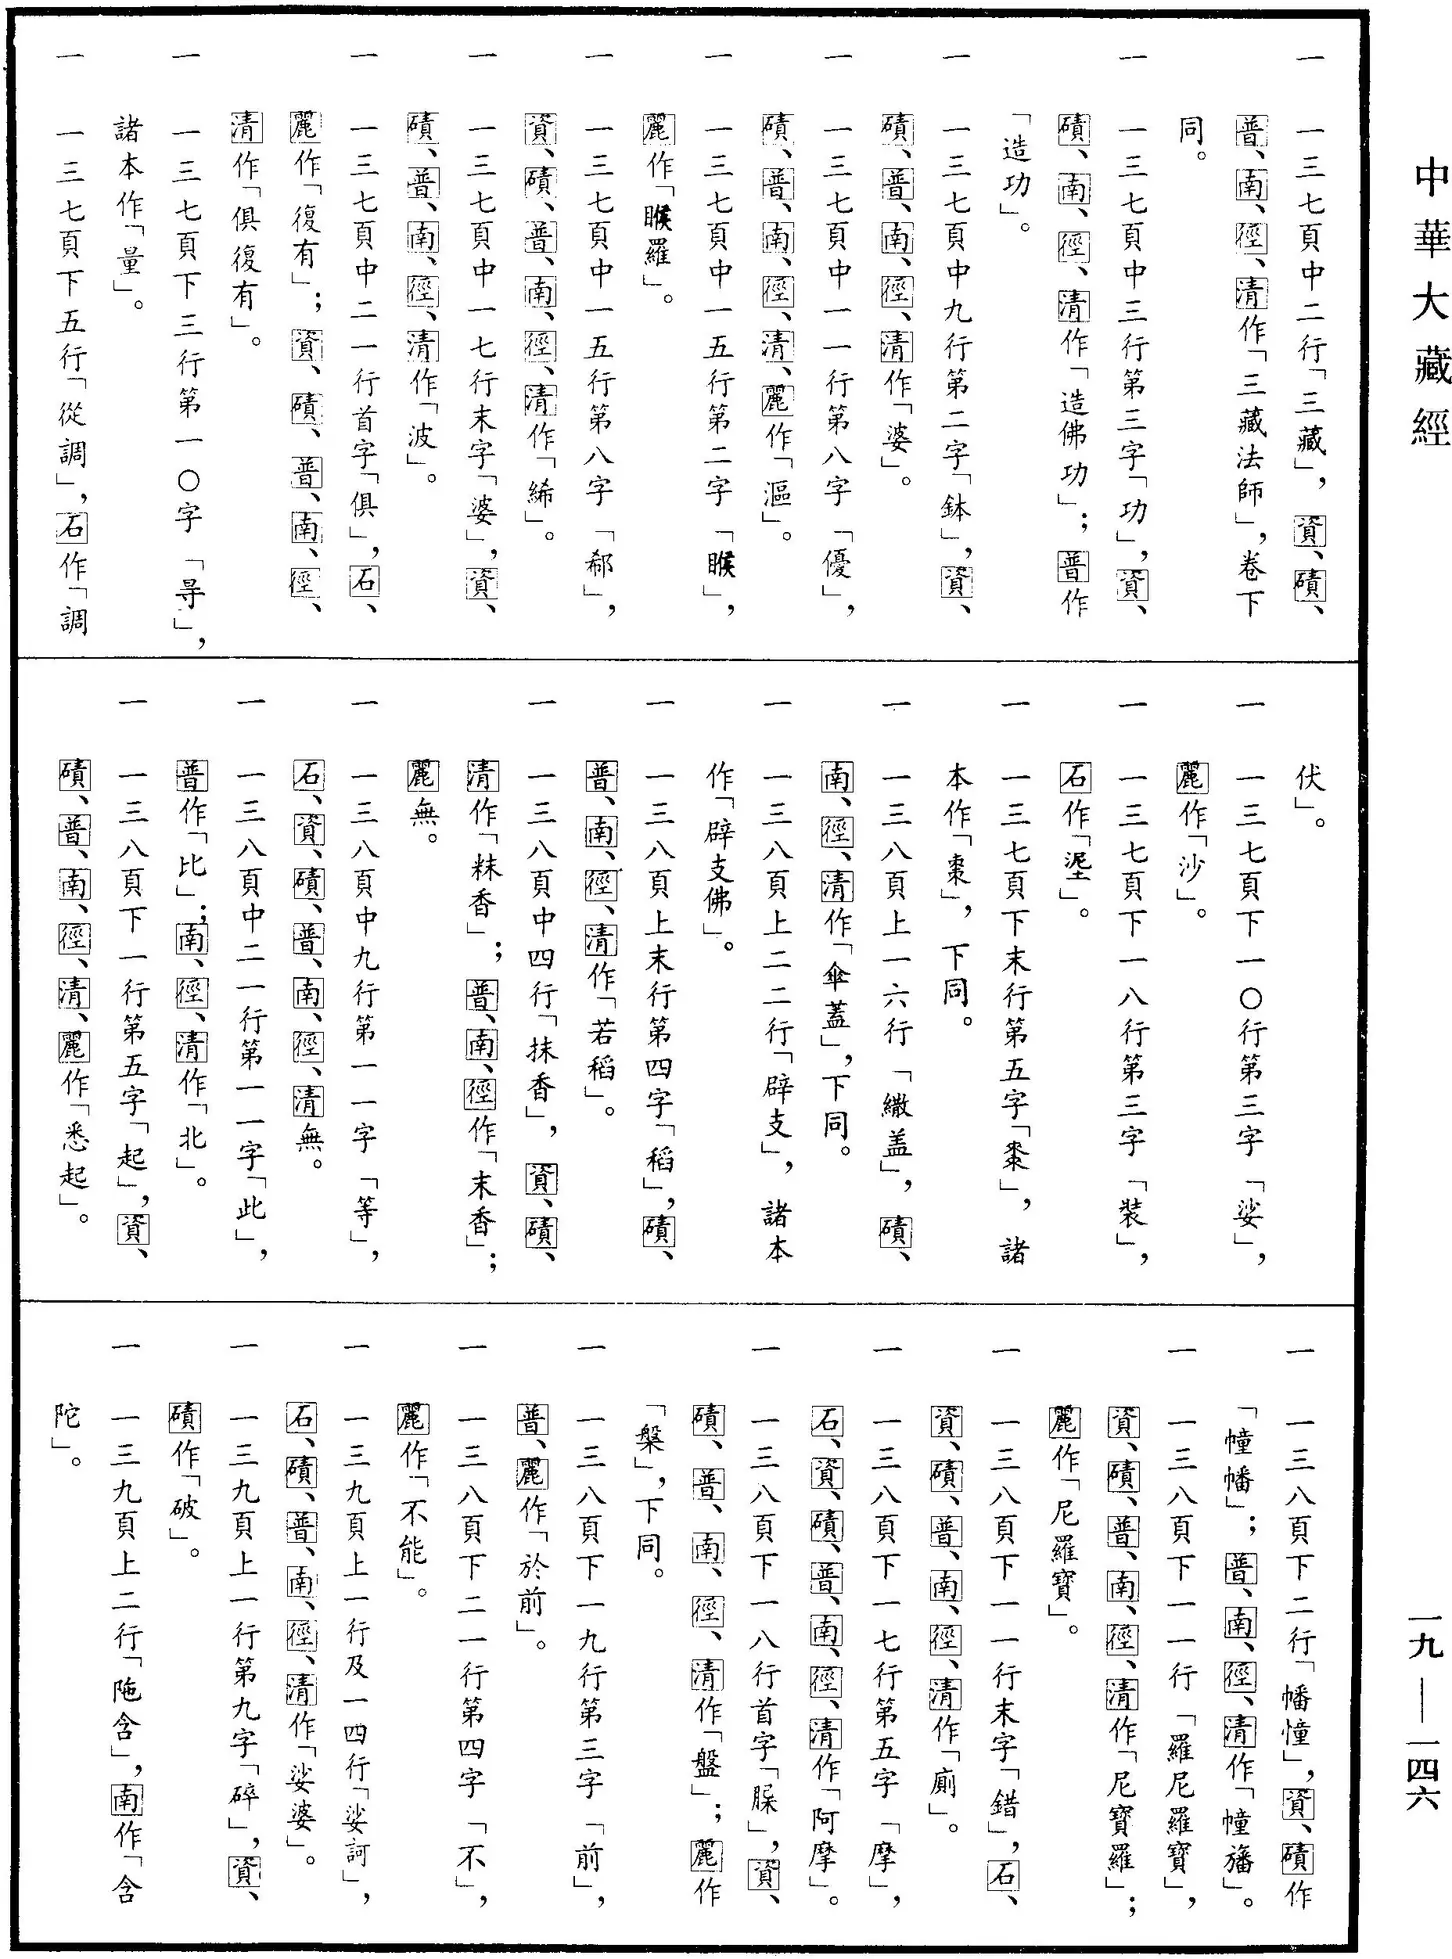 中華大藏經
一九——一四六
一　一三七頁中二行「三藏」，資、磧、
普、南、徑、清作「三藏法師」，卷下
同。
一　一三七頁中三行第三字「功」，資、
磧、南、徑、清作「造佛功」；普作
「造功」。
一　一三七頁中九行第二字「鉢」，資、
磧、普、南、徑、清作「婆」。
一　一三七頁中一一行第八字「優」，
磧、普、南、徑、清、麗作「漚」。
一　一三七頁中一五行第二字「睺」，
麗作「睺羅」。
一　一三七頁中一五行第八字「郗」，
資、磧、普、南、徑、清作「絺」。
一　一三七頁中一七行末字「婆」，資、
磧、普、南、徑、清作「波」。
一　一三七頁中二一行首字「俱」，石、
麗作「復有」；資、磧、普、南、徑、
清作「俱復有」。
一　一三七頁下三行第一〇字「㝵」，
諸本作「量」。
一　一三七頁下五行「從調」，石作「調
伏」。
一　一三七頁下一〇行第三字「娑」，
麗作「沙」。
一　一三七頁下一八行第三字「裝」，
石作「埿」。
一　一三七頁下末行第五字「棗」，諸
本作「棗」，下同。
一　一三八頁上一六行「繖盖」，磧、
南、徑、清作「傘蓋」，下同。
一　一三八頁上二二行「辟支」，諸本
作「辟支佛」。
一　一三八頁上末行第四字「稻」，磧、
普、南、徑、清作「若稻」。
一　一三八頁中四行「抹香」，資、磧、
清作「粖香」；普、南、徑作「末香」；
麗無。
一　一三八頁中九行第一一字「等」，
石、資、磧、普、南、徑、清無。
一　一三八頁中二一行第一一字「此」，
普作「比」；南、徑、清作「北」。
一　一三八頁下一行第五字「起」，資、
磧、普、南、徑、清、麗作「悉起」。
一　一三八頁下二行「幡憧」，資、磧作
「幢幡」；普、南、徑、清作「幢旛」。
一　一三八頁下一一行「羅尼羅寶」，
資、磧、普、南、徑、清作「尼寶羅」；
麗作「尼羅寶」。
一　一三八頁下一一行末字「錯」，石、
資、磧、普、南、徑、清作「廁」。
一　一三八頁下一七行第五字「摩」，
石、資、磧、普、南、徑、清作「阿摩」。
一　一三八頁下一八行首字「𦟛」，資、
磧、普、南、徑、清作「盤」；麗作
「槃」，下同。
一　一三八頁下一九行第三字「前」，
普、麗作「於前」。
一　一三八頁下二一行第四字「不」，
麗作「不能」。
一　一三九頁上一行及一四行「娑訶」，
石、磧、普、南、徑、清作「娑婆」。
一　一三九頁上一行第九字「碎」，資、
磧作「破」。
一　一三九頁上二行「陁含」，南作「含
陀」。